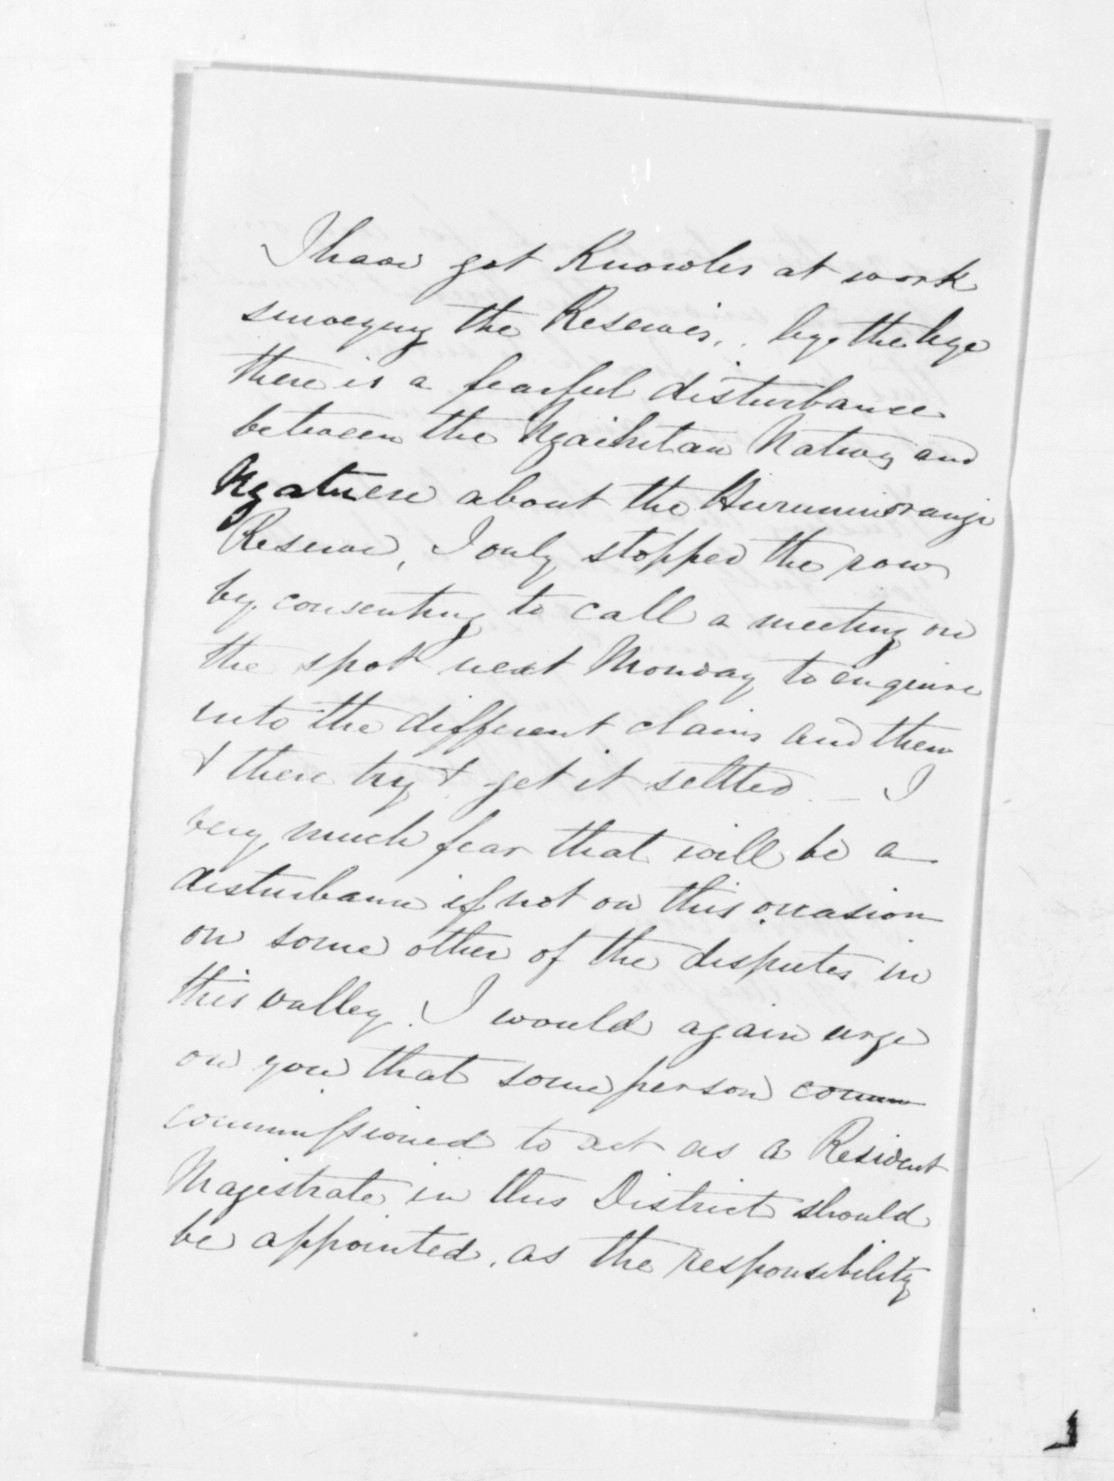 I have got Knowles at work
surveying the Reserves, . by the bye
there is a fearful disturbance
between the Ngaihitau Natives and
Ngatuere about the Hurunuiorangi
Reserve, I only stopped the row
by consenting to call a meeting on
the spot next Monday to enquire
into the different claims and then
& there try & get it settled – I
very much fear that will be a
disturbance if not on this occasion
on some other of the disputes in
this valley. I would again urge
on you that some person comm
commissioned to act as a Resident
Magistrate in this District should
be appointed, as the responsibility